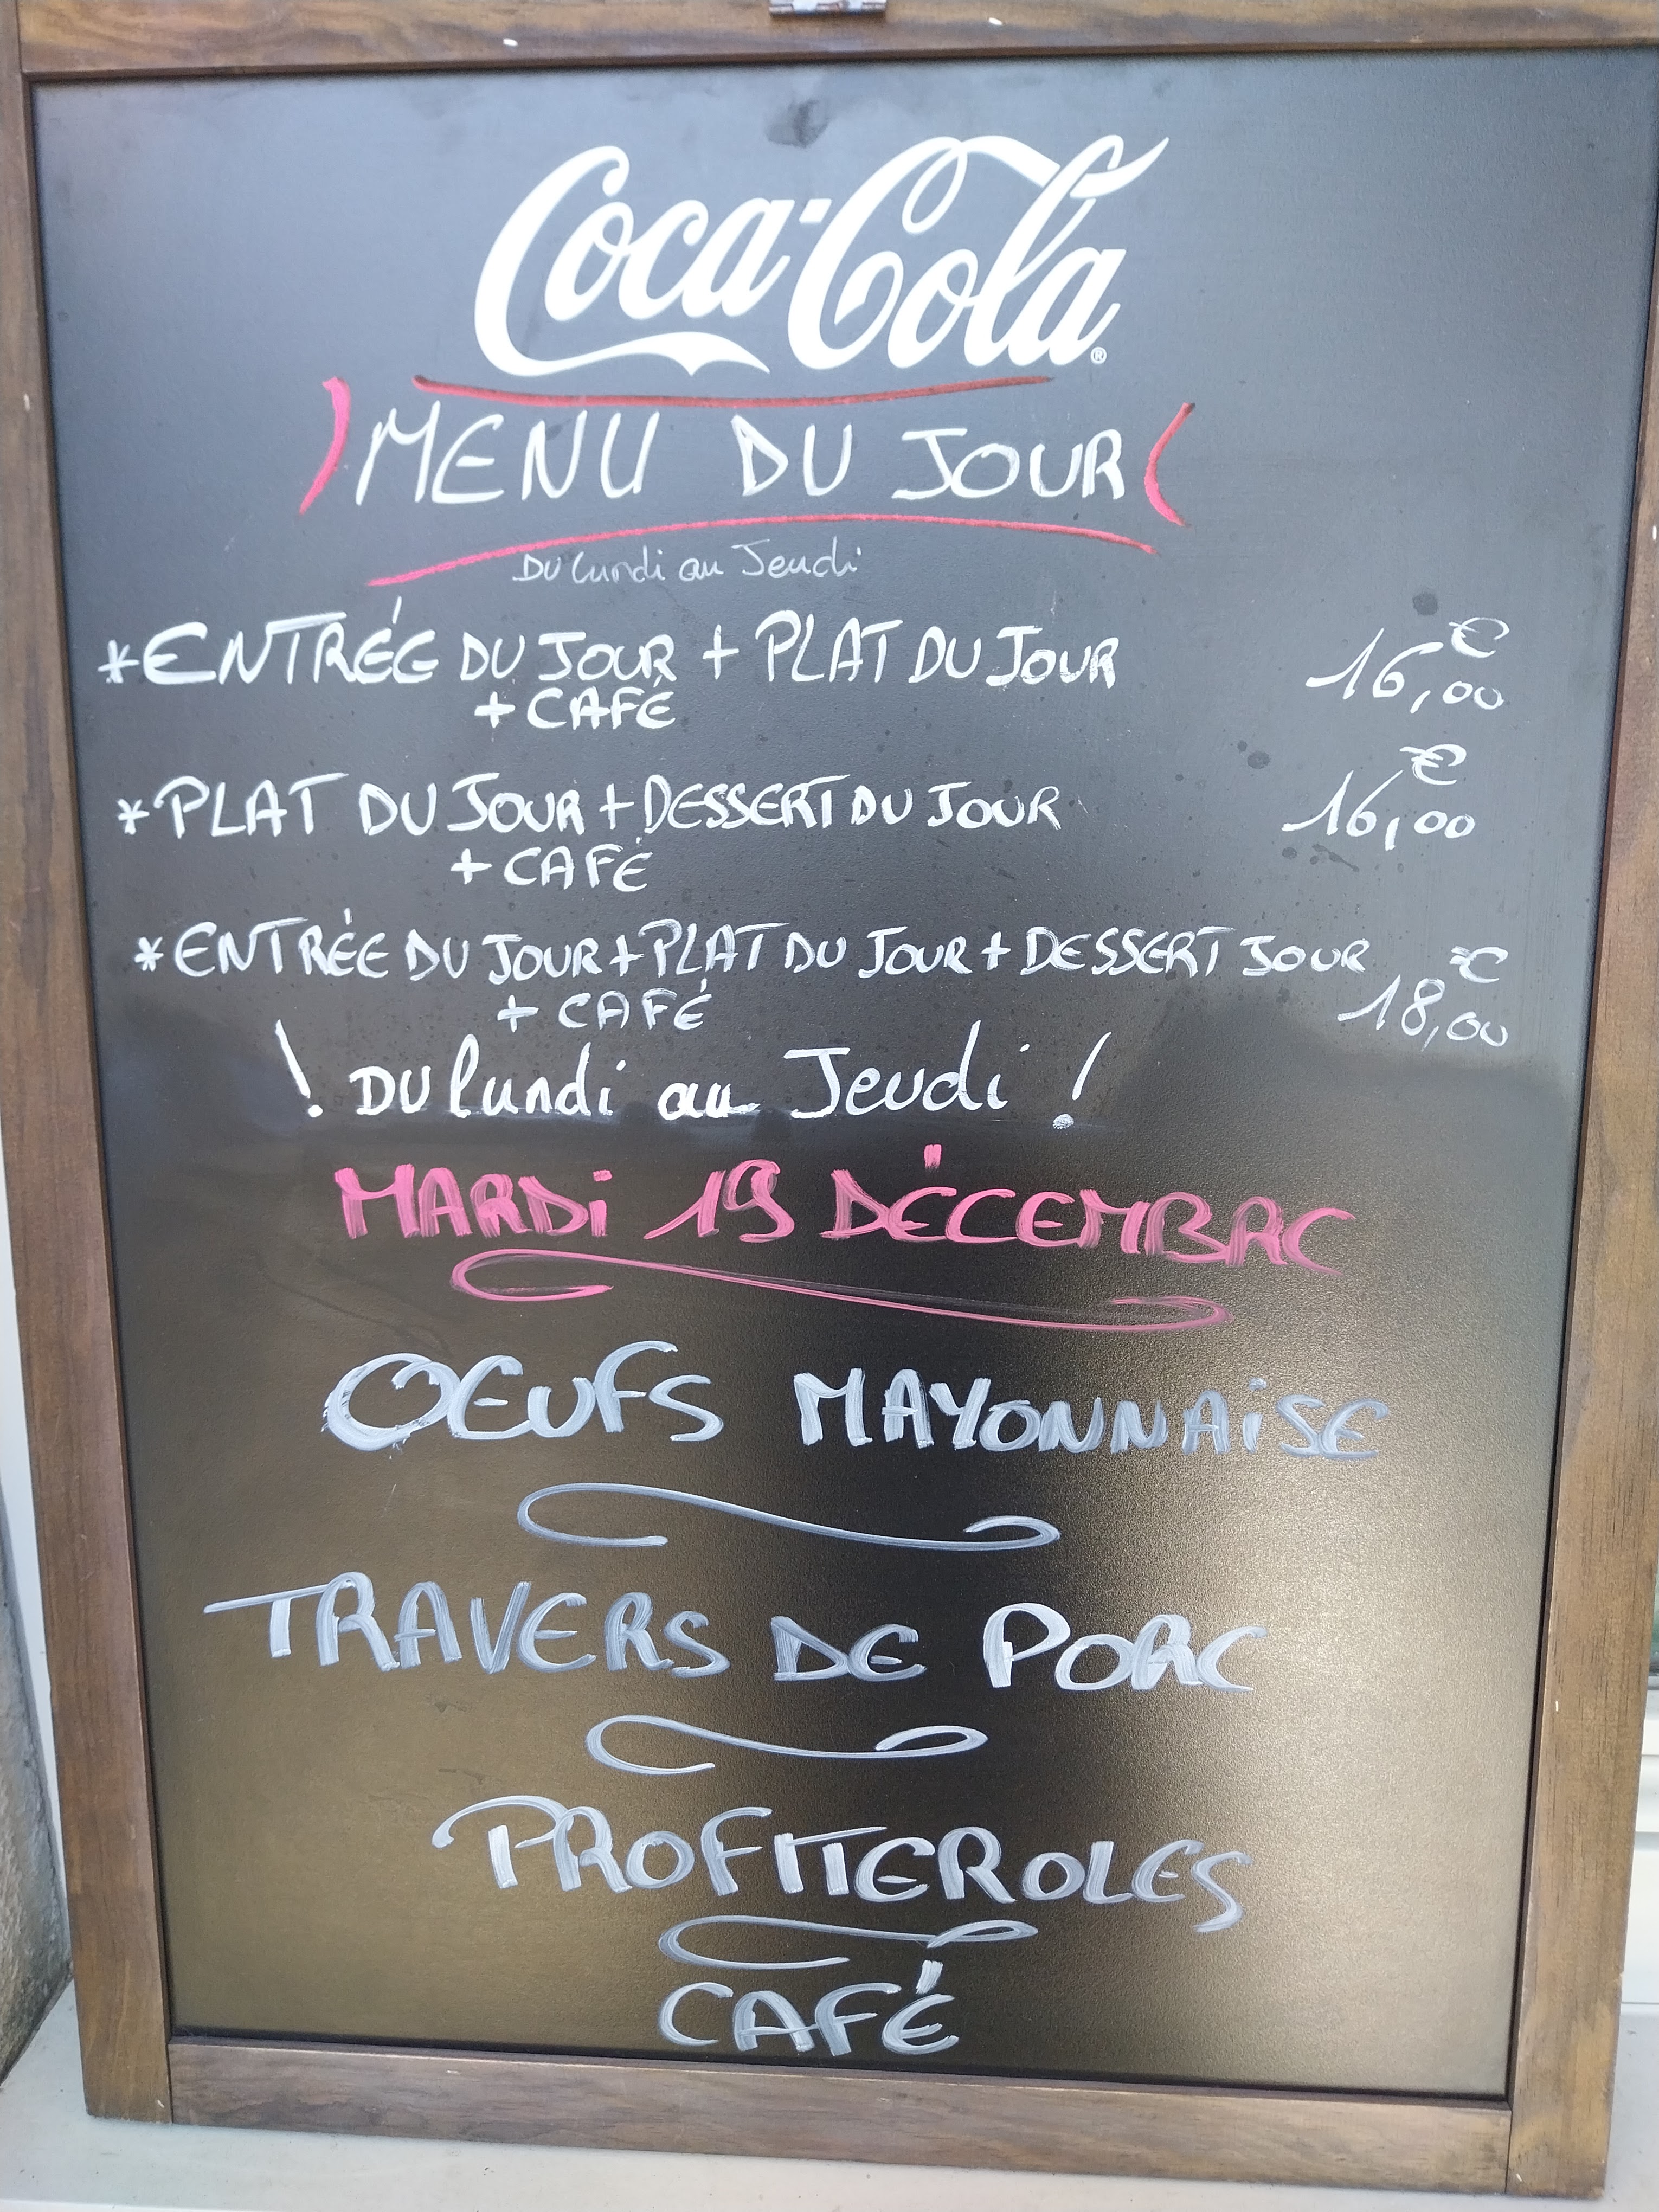 Coca-Cola®
MENU DU JOUR
Du lundi au Jeudi
*ENTRÉE DU JOUR + PLAT DU JOUR 16,00€
+ CAFÉ
*PLAT DU JOUR + DESSERT DU JOUR 16,00€
+ CAFÉ
*ENTRÉE DU JOUR + PLAT DU JOUR + DESSERT JOUR 18,00€
+ CAFÉ
! DU lundi au Jeudi !
MARDi 19 DÉCEMBRE
ŒUFS MAYONNAiSE
TRAVERS DE PORC
PROFITEROLES
CAFÉ